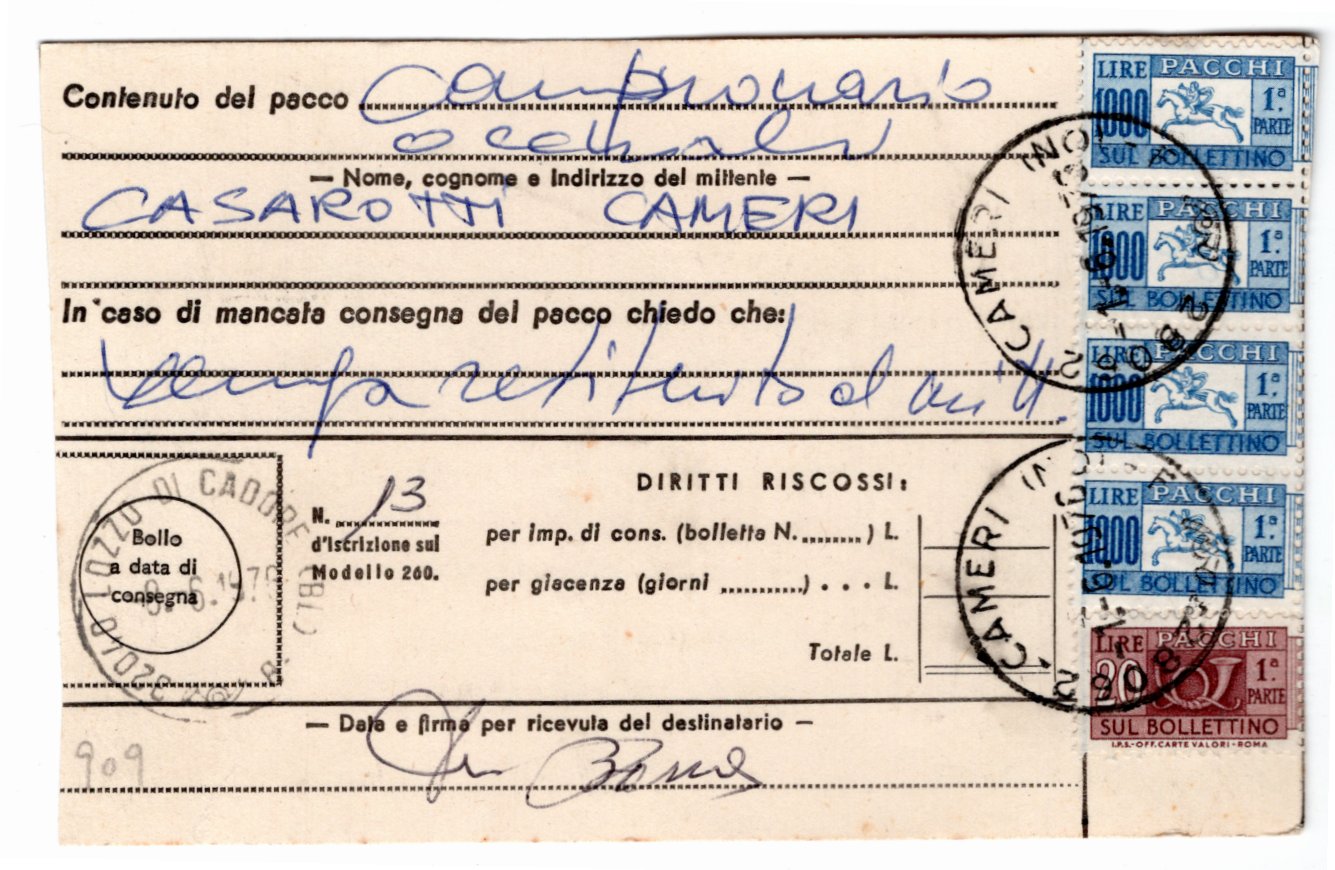 Contenuto del pacco Campionario
occhiali
— Nome, cognome e Indirizzo del mittente —
CASAROTTI CAMERI
In caso di mancata consegna del pacco chiedo che:
venga restituito al mitt.
LIRE PACCHI
1000 1.ª PARTE
SUL BOLLETTINO
LIRE PACCHI
1000 1.ª PARTE
SUL BOLLETTINO
LIRE PACCHI
1000 1.ª PARTE
SUL BOLLETTINO
LIRE PACCHI
1000 1.ª PARTE
SUL BOLLETTINO
LIRE PACCHI
20 1.ª PARTE
SUL BOLLETTINO
I.P.S.-OFF.CARTE VALORI-ROMA
28062 CAMERI (NO)
28062 CAMERI (NO)
32040 LOZZO DI CADORE (BL)
Bollo
a data di
consegna
N. 13
d'Iscrizione sul
Modello 260.
DIRITTI RISCOSSI:
per imp. di cons. (bolletta N.........) L.
per giacenza (giorni ..........) . . . L.
Totale L.
— Data e firma per ricevuta del destinatario —
909